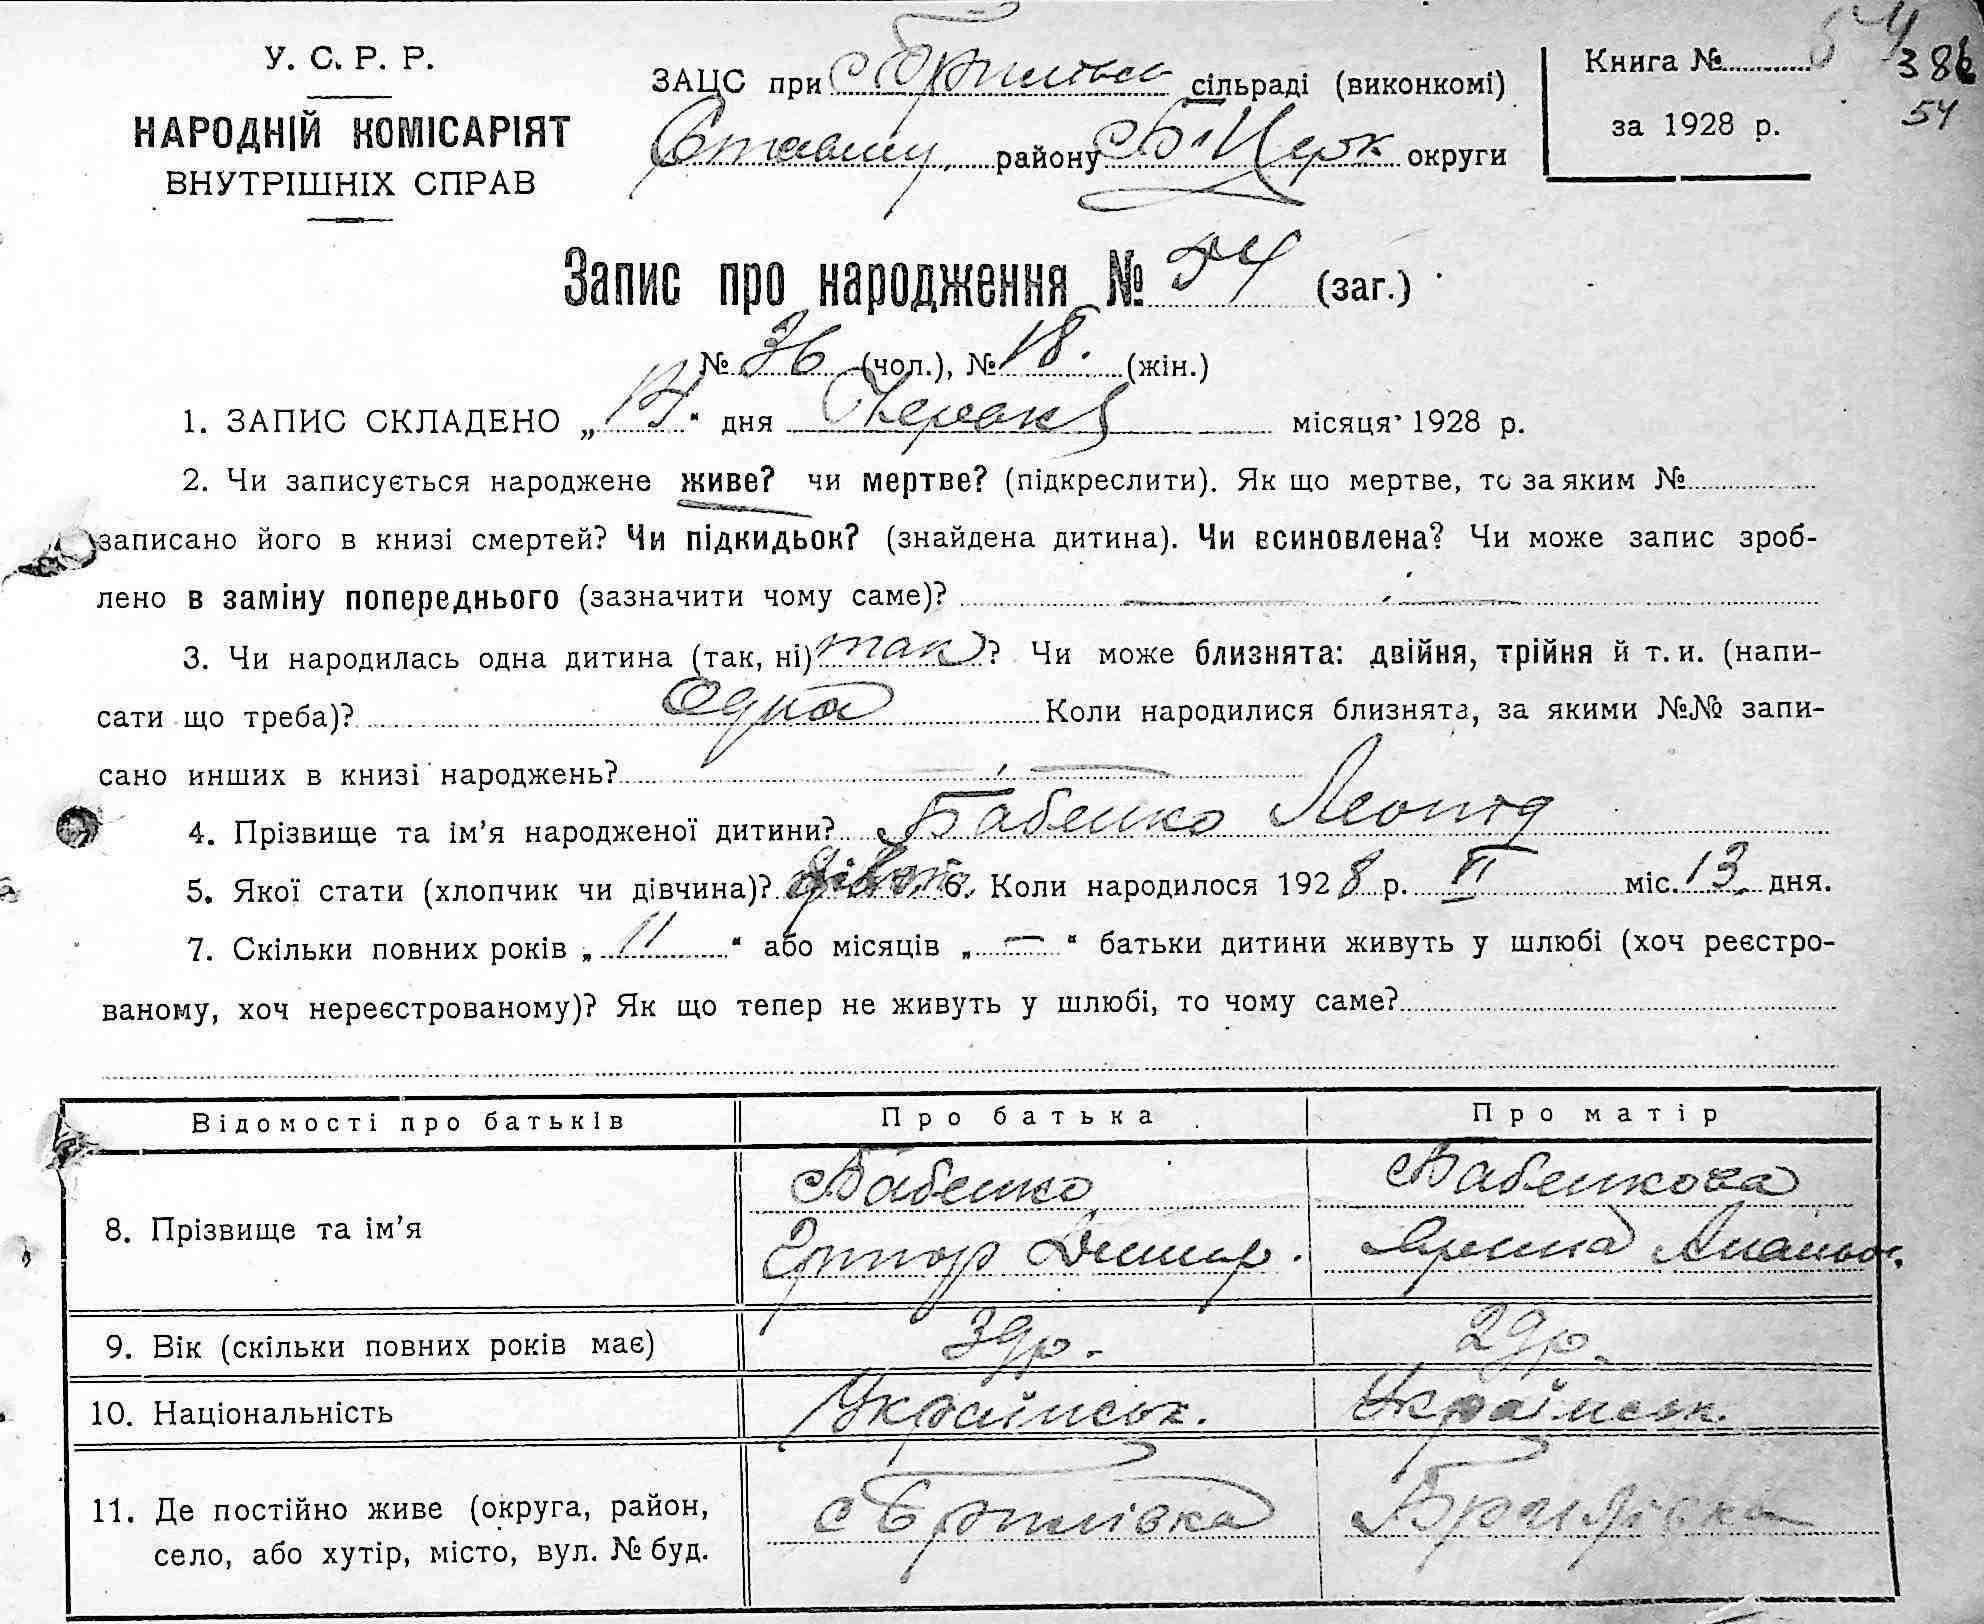 У. С. Р. Р.
НАРОДНІЙ КОМІСАРІЯТ
ВНУТРІШНІХ СПРАВ
ЗАЦС при сільраді (виконкомі)
району Б-Церк округи
Книга № 54 38
за 1928 р. 54
Запис про народження № 54 (заг.)
№ 36 (чол.), № 18. (жін.)
1. ЗАПИС СКЛАДЕНО „ “ дня місяця 1928 р.
2. Чи записується народжене живе? чи мертве? (підкреслити). Як що мертве, то за яким №
записано його в книзі смертей? Чи підкидьок? (знайдена дитина). Чи всиновлена? Чи може запис зроб-
лено в заміну попереднього (зазначити чому саме)? —
3. Чи народилась одна дитина (так, ні) так? Чи може близнята: двійня, трійня й т. и. (напи-
сати що треба)? Одна Коли народилися близнята, за якими №№ запи-
сано инших в книзі народжень? —
4. Прізвище та ім’я народженої дитини? Бабенко Леонід
5. Якої стати (хлопчик чи дівчина)? 6. Коли народилося 1928 р. міс. 13. дня.
7. Скільки повних років „ 11 “ або місяців „ — “ батьки дитини живуть у шлюбі (хоч реєстро-
ваному, хоч нереєстрованому)? Як що тепер не живуть у шлюбі, то чому саме?
Відомості про батьків Про батька Про матір
8. Прізвище та ім’я Бабенко Бабенкова
Димир. Ярина Ананьов.
9. Вік (скільки повних років має)
10. Національність Українськ. Українськ.
11. Де постійно живе (округа, район, с Брилівка Брилівка
село, або хутір, місто, вул. № буд.